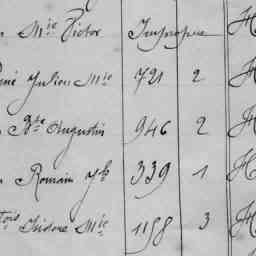 Mie Victor Impropre H
Julien Mie 721 2 H
Bte Augustin 946 2 H
Romain Jh 339 1 H
Isidore Mie 1158 3 H